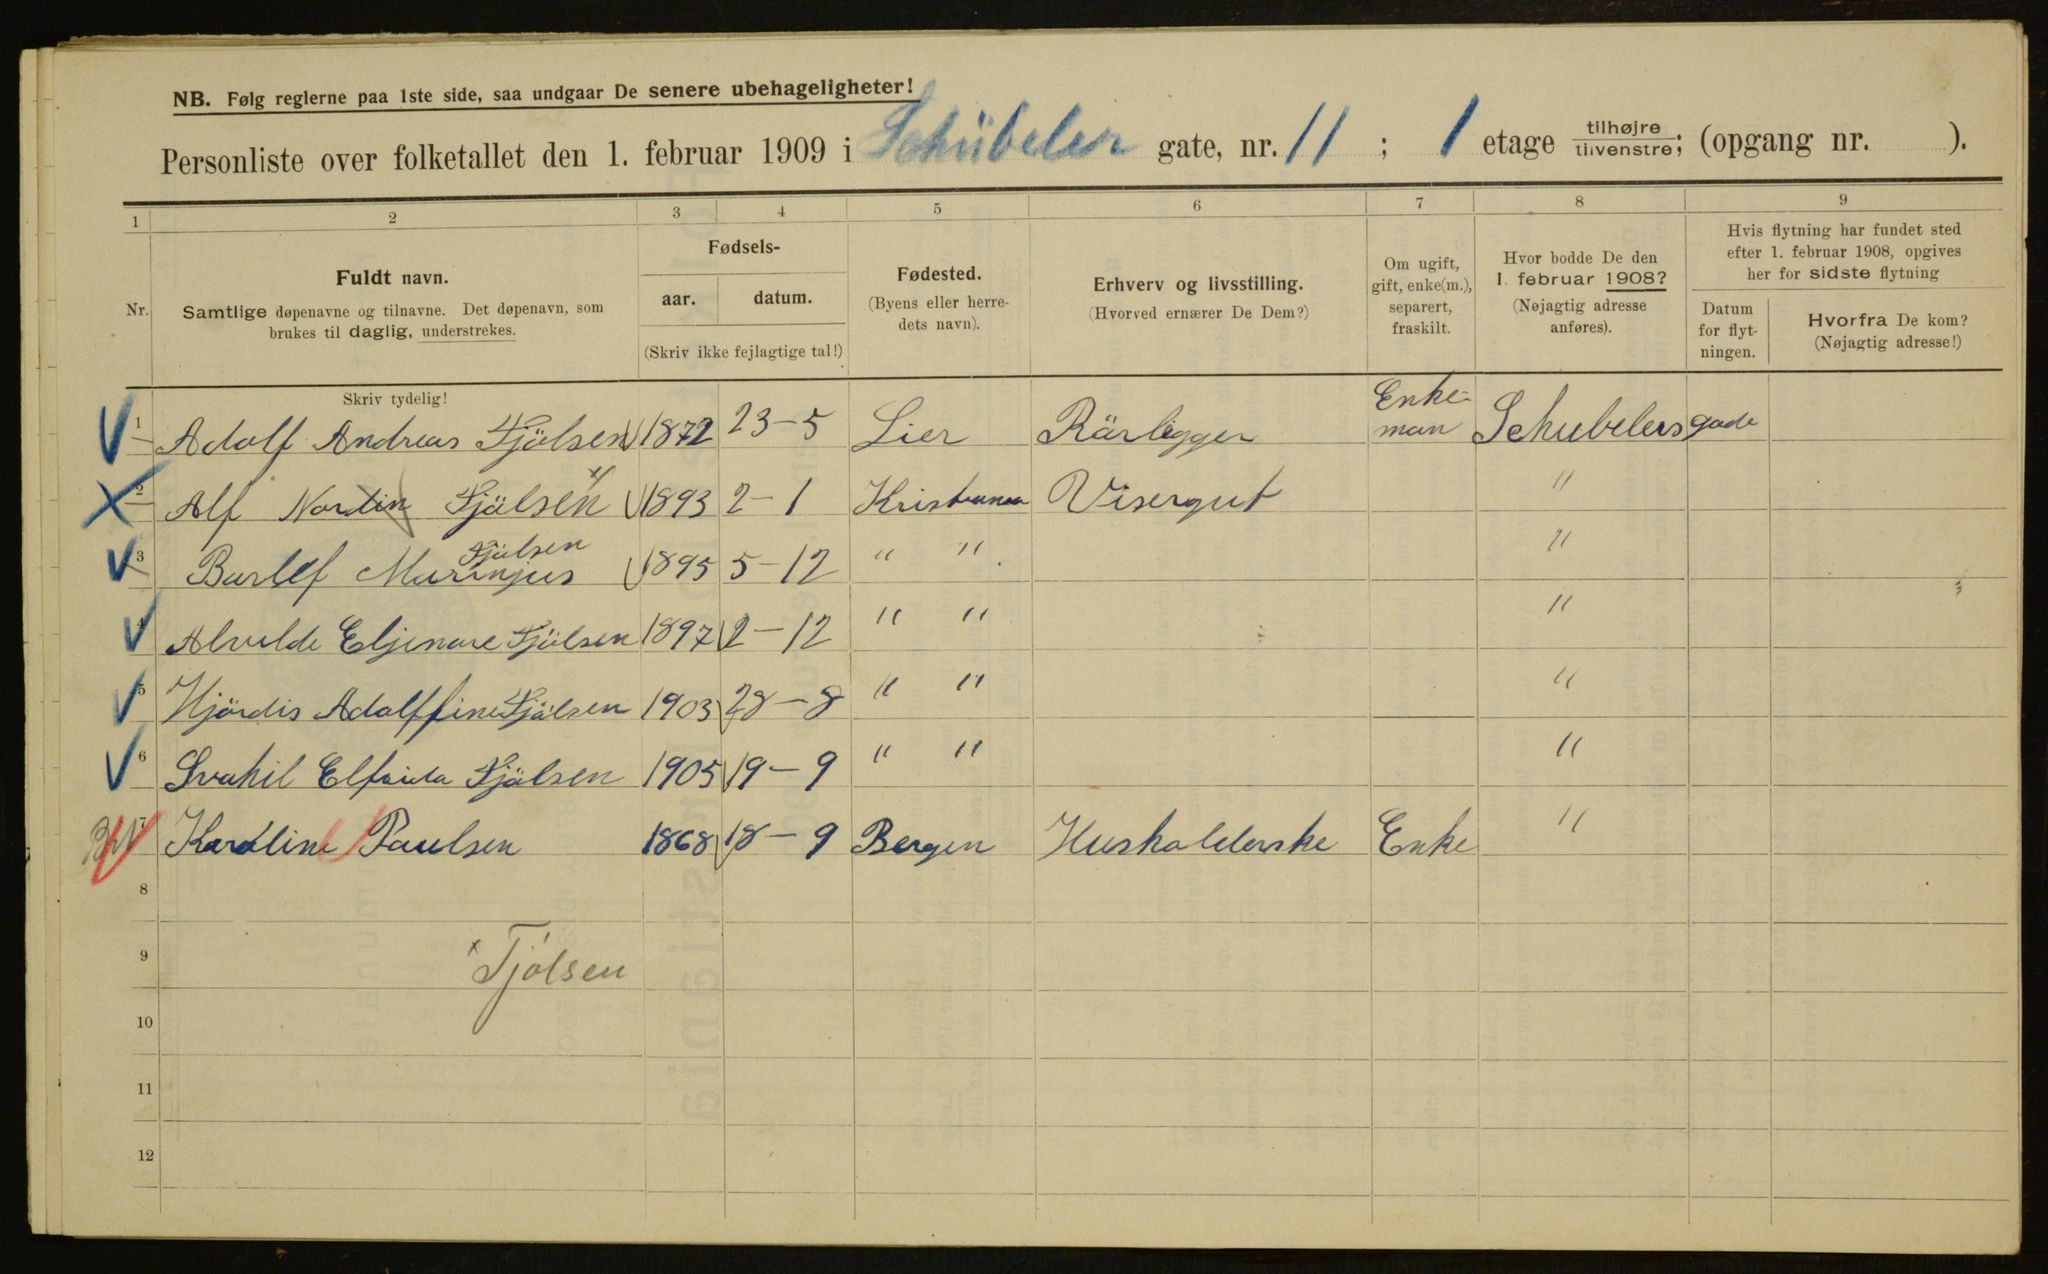 NB. Følg reglerne paa 1ste side, saa undgaar De senere ubehageligheter!
Personliste over folketallet den 1. februar 1909 i Schübeler gate, nr. 11 ; 1 etage tilhøjre tilvenstre; (opgang nr. ).
1 2 3 4 5 6 7 8 9
Nr.
Fuldt navn.
Samtlige døpenavne og tilnavne. Det døpenavn, som
brukes til daglig, understrekes.
Fødsels-
aar. datum.
(Skriv ikke fejlagtige tal!)
Fødested.
(Byens eller herre-
dets navn).
Erhverv og livsstilling.
(Hvorved ernærer De Dem?)
Om ugift,
gift, enke(m.),
separert,
fraskilt.
Hvor bodde De den
1. februar 1908?
(Nøjagtig adresse
anføres).
Hvis flytning har fundet sted
efter 1. februar 1908, opgives
her for sidste flytning
Datum
for flyt-
ningen.
Hvorfra De kom?
(Nøjagtig adresse!)
Skriv tydelig!
1 Adolf Andreas Tjölsen 1872 23-5 Lier Rärligger Enke-man Schubelers gade
2 Alf Nordin Tjölsen 1893 2-1 Kristiania Visergut "
3 Barlef Marinjus Tjölsen 1895 5-12 " " "
4 Alvilde Eljenore Tjölsen 1897 2-12 " " "
5 Hjördis Adolffine Tjölsen 1903 28-8 " " "
6 Svahil Elfrida Tjölsen 1905 19-9 " " "
7 Karoline Paulsen 1868 18-9 Bergen Husholderske Enke "
8
9 x Tjölsen
10
11
12